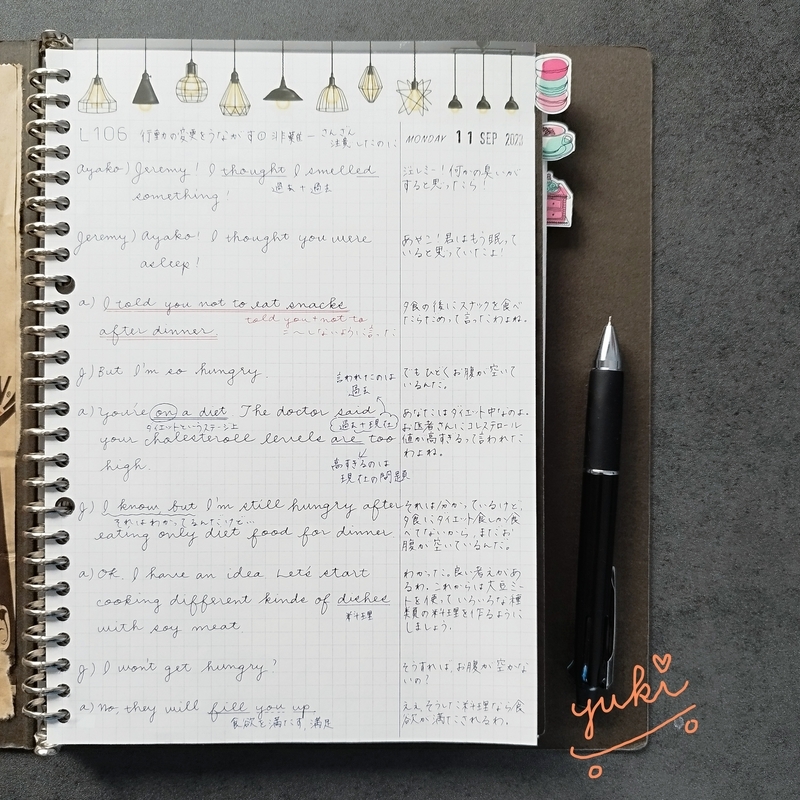 L106 行動の変更をうながす① 非難 ー さんざん
注意したのに
MONDAY 11 SEP 2023
Ayako) Jeremy! I thought I smelled
過去 + 過去
something!
Jeremy) Ayako! I thought you were
asleep!
a) I told you not to eat snacks
told you + not to
after dinner.
〜しないように言った
j) But I'm so hungry.
言われたのは
過去
a) You're on a diet The doctor said
ダイエットというステージ上
過去+現在
your cholesteroll levels are too
high.
高すぎるのは
現在の問題
j) I know, but I'm still hungry after
それはわかってるんだけど…
eating only diet food for dinner
a) OK, I have an idea Let's start
cooking different kinds of dishes
料理
with soy meat.
j) I wont get hungry?
a) No, they will fill you up.
食欲を満たす, 満足
ジェレミー! 何かの臭いが
すると思ったら!
あやこ! 君はもう眠って
いると思っていたよ!
夕食の後にスナックを食べ
たらだめって言ったわよね。
でもひどくお腹が空いて
いるんだ。
あなたはダイエット中なのよ。
お医者さんにコレステロール
値が高すぎるって言われた
わよね。
それは分かっているけど、
夕食にダイエット食しか食
べてないから、まだお
腹が空いているんだ。
わかった。良い考えがあ
るわ。これからは大豆ミー
トを使っていろいろな種
類の料理を作るように
しましょう。
そうすれば、お腹が空かな
いの?
ええ、そうした料理なら食
欲が満たされるわ。
yuki